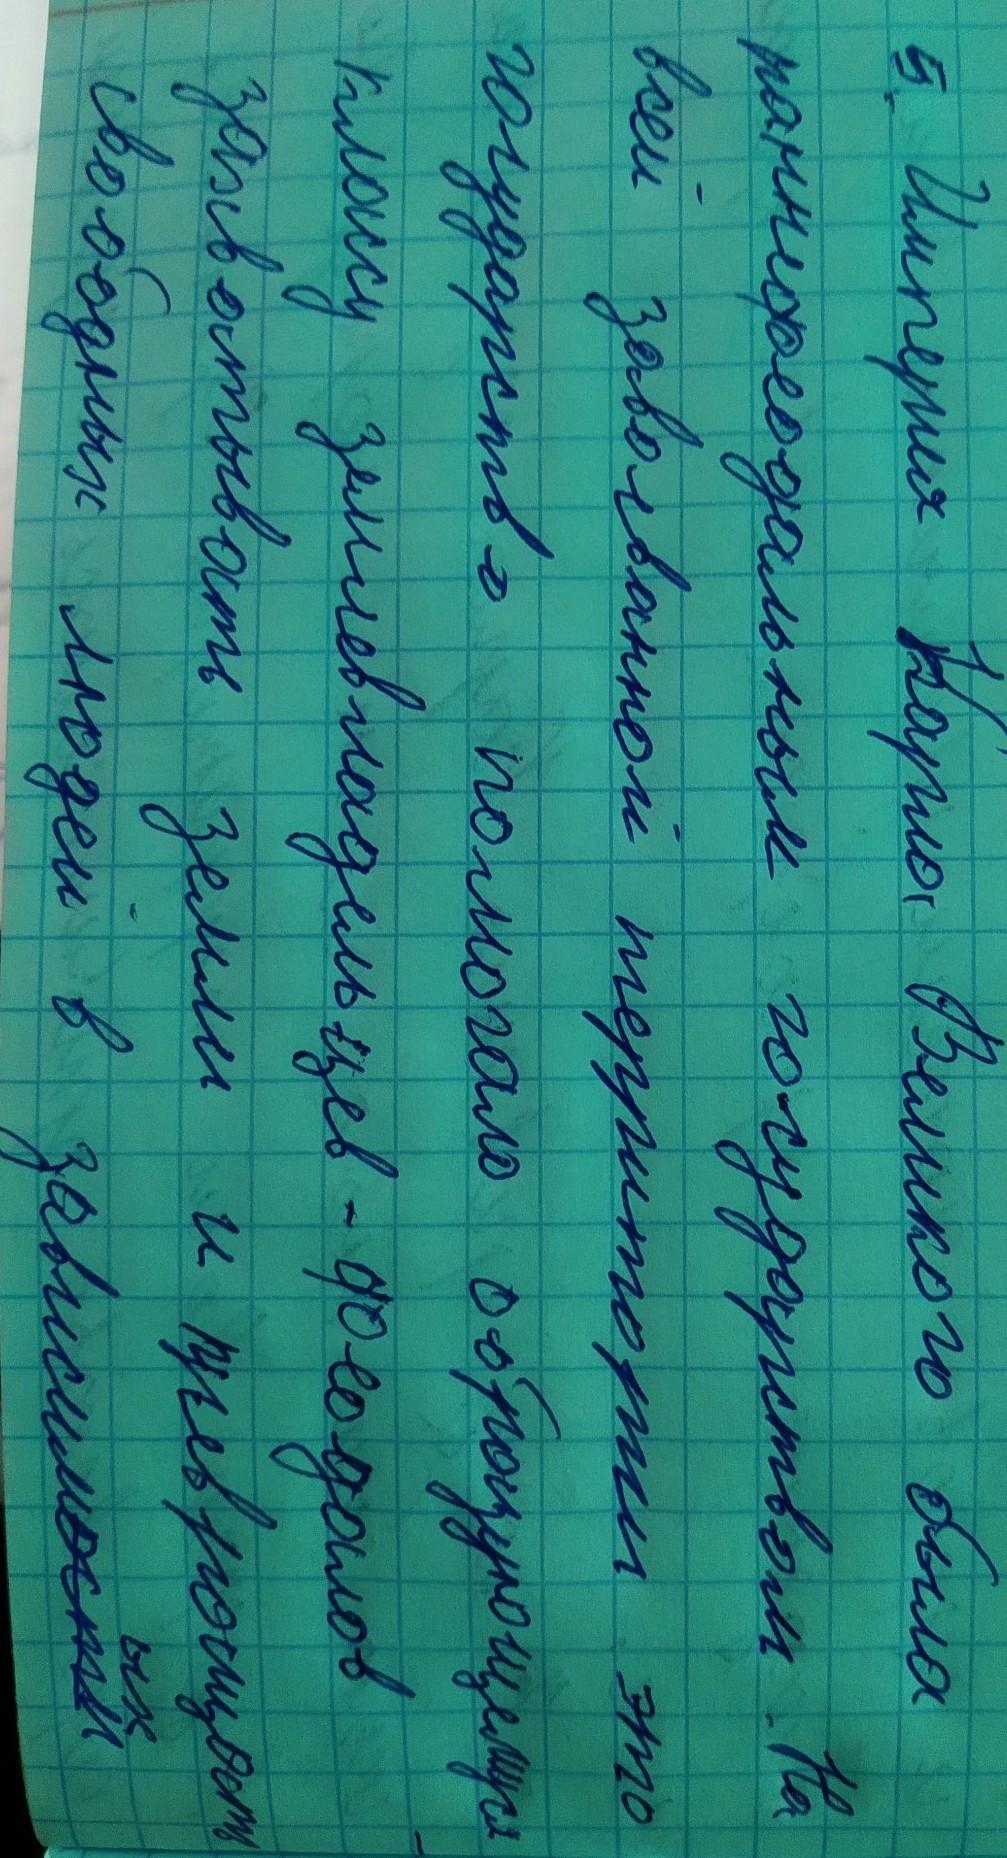 5. Империя Карла Великого была
раннефеодальным государством. На
всей завоеванной территории это
государство помогало образующемуся
классу землевладельцев-феодалов
захватывать земли и превращать
свободных людей в зависимых